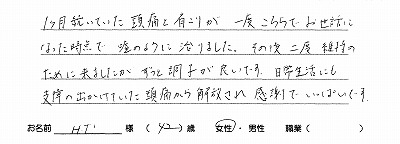 1ヶ月続いていた頭痛と肩こりが一度こちらでお世話に
なった時点で嘘のように治りました。その後二度維持の
ために来ましたがずっと調子が良いです。日常生活にも
支障の出かけていた頭痛から解放され感謝でいっぱいです。
お名前 H.T 様 (42)歳 女性・男性 職業( )